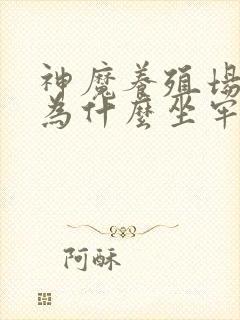 神魔養殖場
為什麼坐牢
阿酥